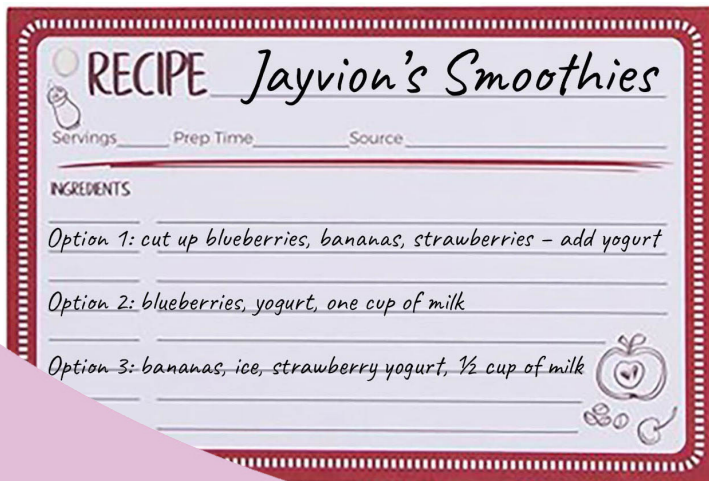 RECIPE Jayvion's Smoothies
Servings Prep Time Source
INGREDIENTS
Option 1: cut up blueberries, bananas, strawberries – add yogurt
Option 2: blueberries, yogurt, one cup of milk
Option 3: bananas, ice, strawberry yogurt, ½ cup of milk